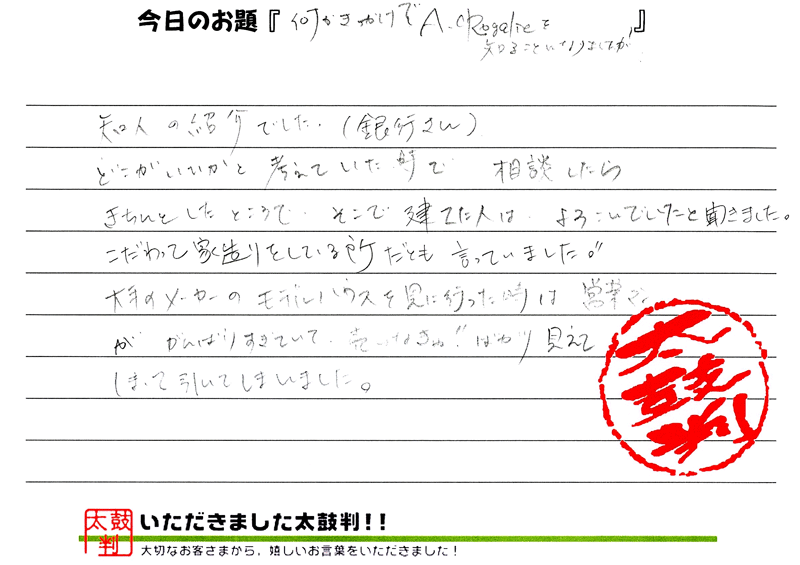 今日のお題『何がきっかけでA.CRogalieを
知ることになりましたか』
知人の紹介でした。(銀行さん)
どこがいいかと考えていた時で 相談したら
きちんとしたところで、そこで建てた人は、よろこんでいたと聞きました。
こだわって家造りをしている所だとも言っていました。"
大手のメーカーのモデルハウスを見に行った時は 営業さん
が がんばりすぎていて、売らなきゃ"ばかり見えて
しまって引いてしまいました。
太鼓判
太鼓判
いただきました太鼓判!!
大切なお客さまから、嬉しいお言葉をいただきました!